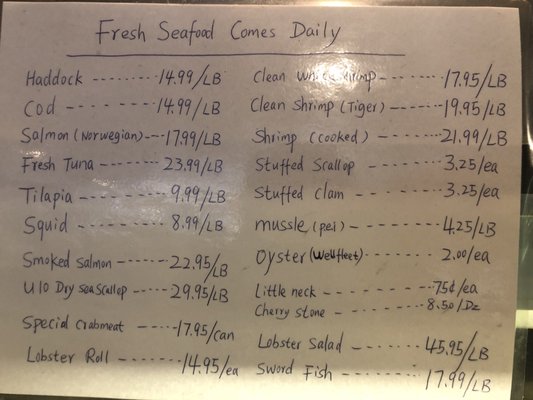 Fresh Seafood Comes Daily
Haddock ------- 14.99/LB
Cod - - - - - - - 14.99/LB
Salmon (Norwegian)--- 17.99/LB
Fresh Tuna ------- 23.99/LB
Tilapia ------- 9.99/LB
Squid ------- 8.99/LB
Smoked Salmon ------- 22.95/LB
U10 Dry Sea Scallop ------- 29.95/LB
Special Crabmeat -----17.95/can
Lobster Roll - - - - - - - 14.95/ea
Clean White Shrimp ------- 17.95/LB
Clean Shrimp (Tiger) ------- 19.95/LB
Shrimp (cooked) ------- 21.99/LB
Stuffed Scallop - - - - - - - 3.25/ea
Stuffed Clam - - - - - - - 3.25/ea
mussle (pei) - - - - - - - 4.25/LB
Oyster (Wellfleet)- - - - - - - 2.00/ea
Little neck - - - - - - - 75¢/ea
Cherry stone - - - - - - - 8.50/Dz
Lobster Salad ------- 45.95/LB
Sword Fish - - - - - - - 17.99/LB